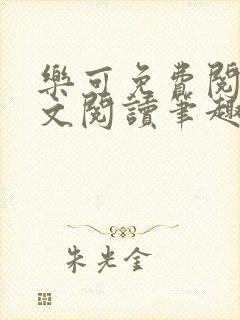 樂可免費閱
文閱讀筆趣
朱光金